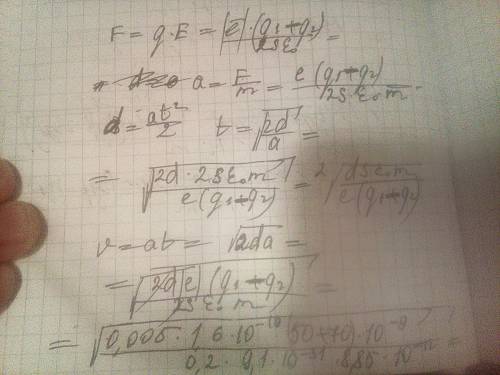 F = q·E = |e|·(q₁+q₂)/2Sε₀ =
a = F/m = e(q₁+q₂)/2Sε₀m
d = at²/2 t = √(2d/a) =
= √(2d·2Sε₀m / e(q₁+q₂)) = 2√(dSε₀m / e(q₁+q₂))
v = at = √(2da) =
= √(2d|e|(q₁+q₂) / 2Sε₀m) =
= √(0,005·1,6·10⁻¹⁹(50+70)·10⁻⁹ / 0,2·9,1·10⁻³¹·8,85·10⁻¹²) =